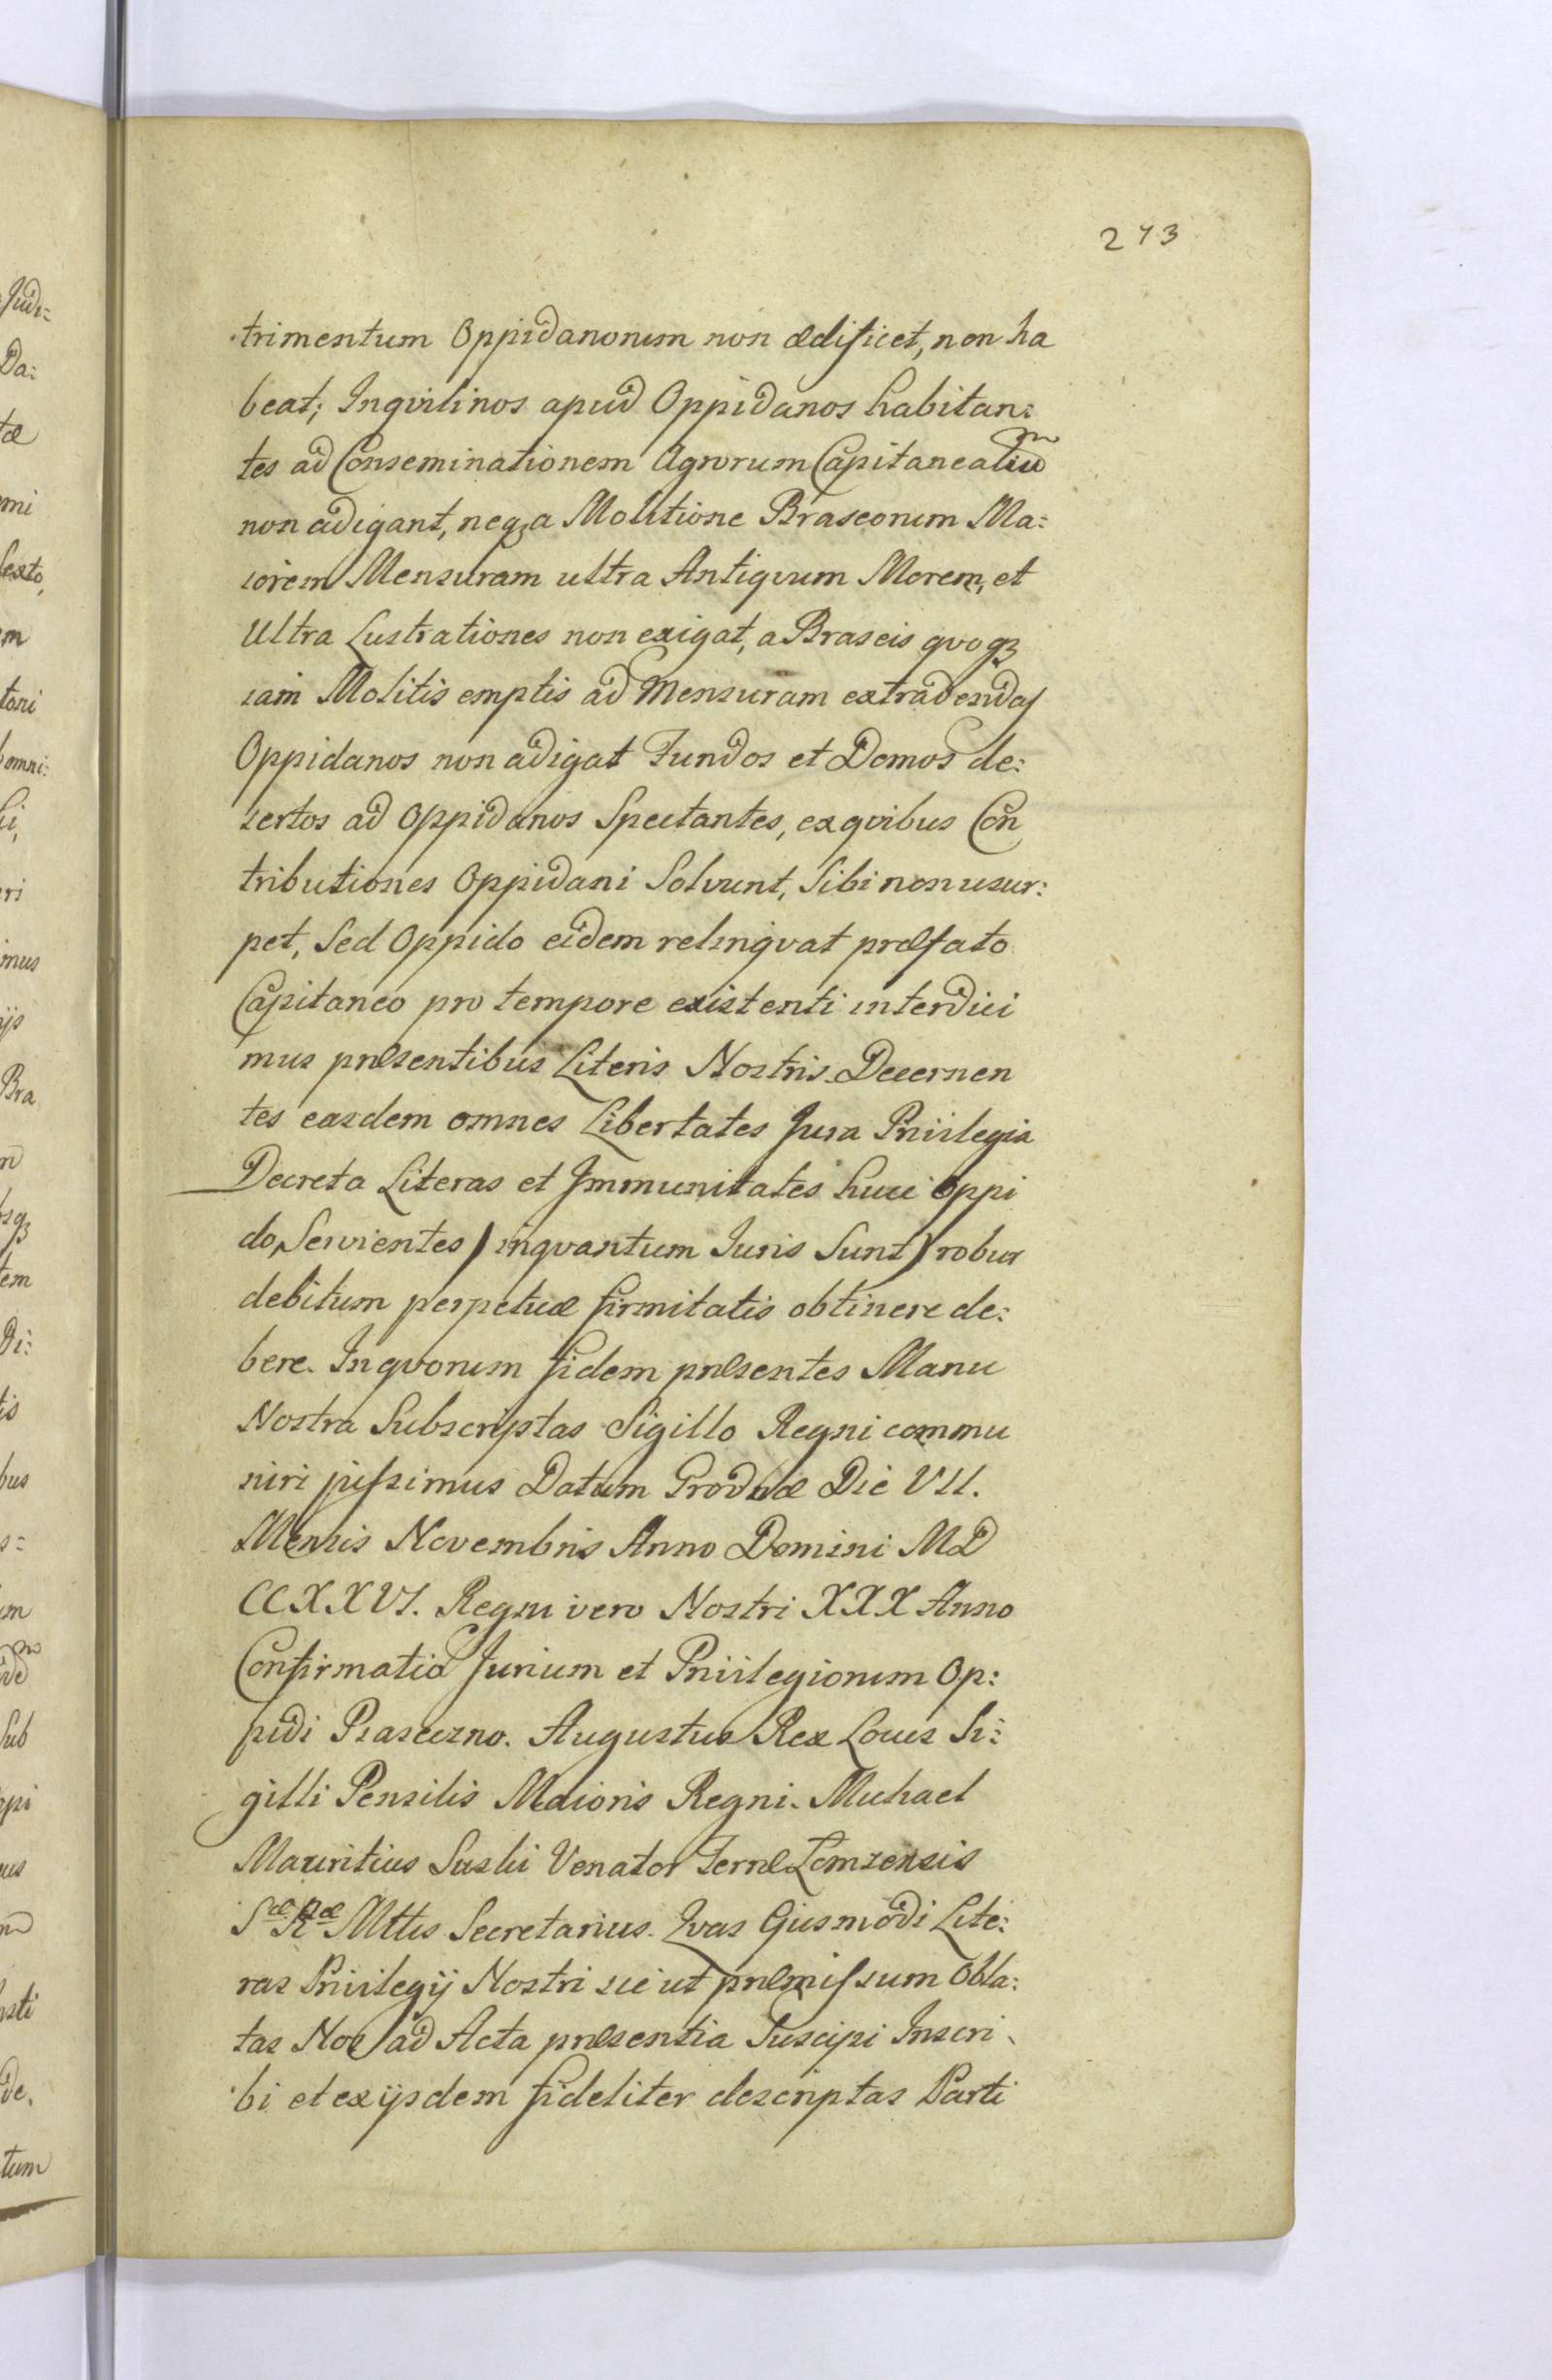 273
trimentum Oppidanorum non ædificet, non ha
beat; Inqvilinos apud Oppidanos habitan:
tes ad Conseminationem Agrorum Capitanealiũ
non adigant, neq₃ a Molitione Braseorum Ma:
iorem Mensuram ultra Antiqvum Morem, et
Ultra Lustrationes non exigat, a Braseis qvoq₃
iam Molitis emptis ad Mensuram extradendas
Oppidanos non adigat Fundos et Domos de:
sertos ad Oppidanos Spectantes, ex qvibus Con
tributiones Oppidani Solvunt, Sibi non usur:
pet, Sed Oppido eidem relinqvat præfato
Capitaneo pro tempore existenti interdici
mus præsentibus Literis Nostris. Decernen
tes easdem omnes Libertates Jura Privilegia
Decreta Literas et Immunitates huic Oppi
do, Servientes) inqvantum Juris Sunt) robur
debitum perpetuæ firmitatis obtinere de:
bere. In qvorum fidem præsentes Manu
Nostra Subscriptas Sigillo Regni commu
niri jussimus Datum Grodnæ Die VII.
Mensis Novembris Anno Domini MD
CCXXVI. Regni vero Nostri XXX Anno
Confirmatio Jurium et Privilegiorum Op:
pidi Prascizno. Augustus Rex Locus Si:
gilli Pensilis Maioris Regni. Michael
Mauritius Suski Venator Terræ Lomzensis
Sæ Ræ Mttis Secretarius. Qvas Ejusmodi Lite:
ras Privilegij Nostri sic ut præmissum Obla:
tas Nos ad Acta præsentia Suscipi Inscri
bi et ex ijsdem fideliter descriptas Parti